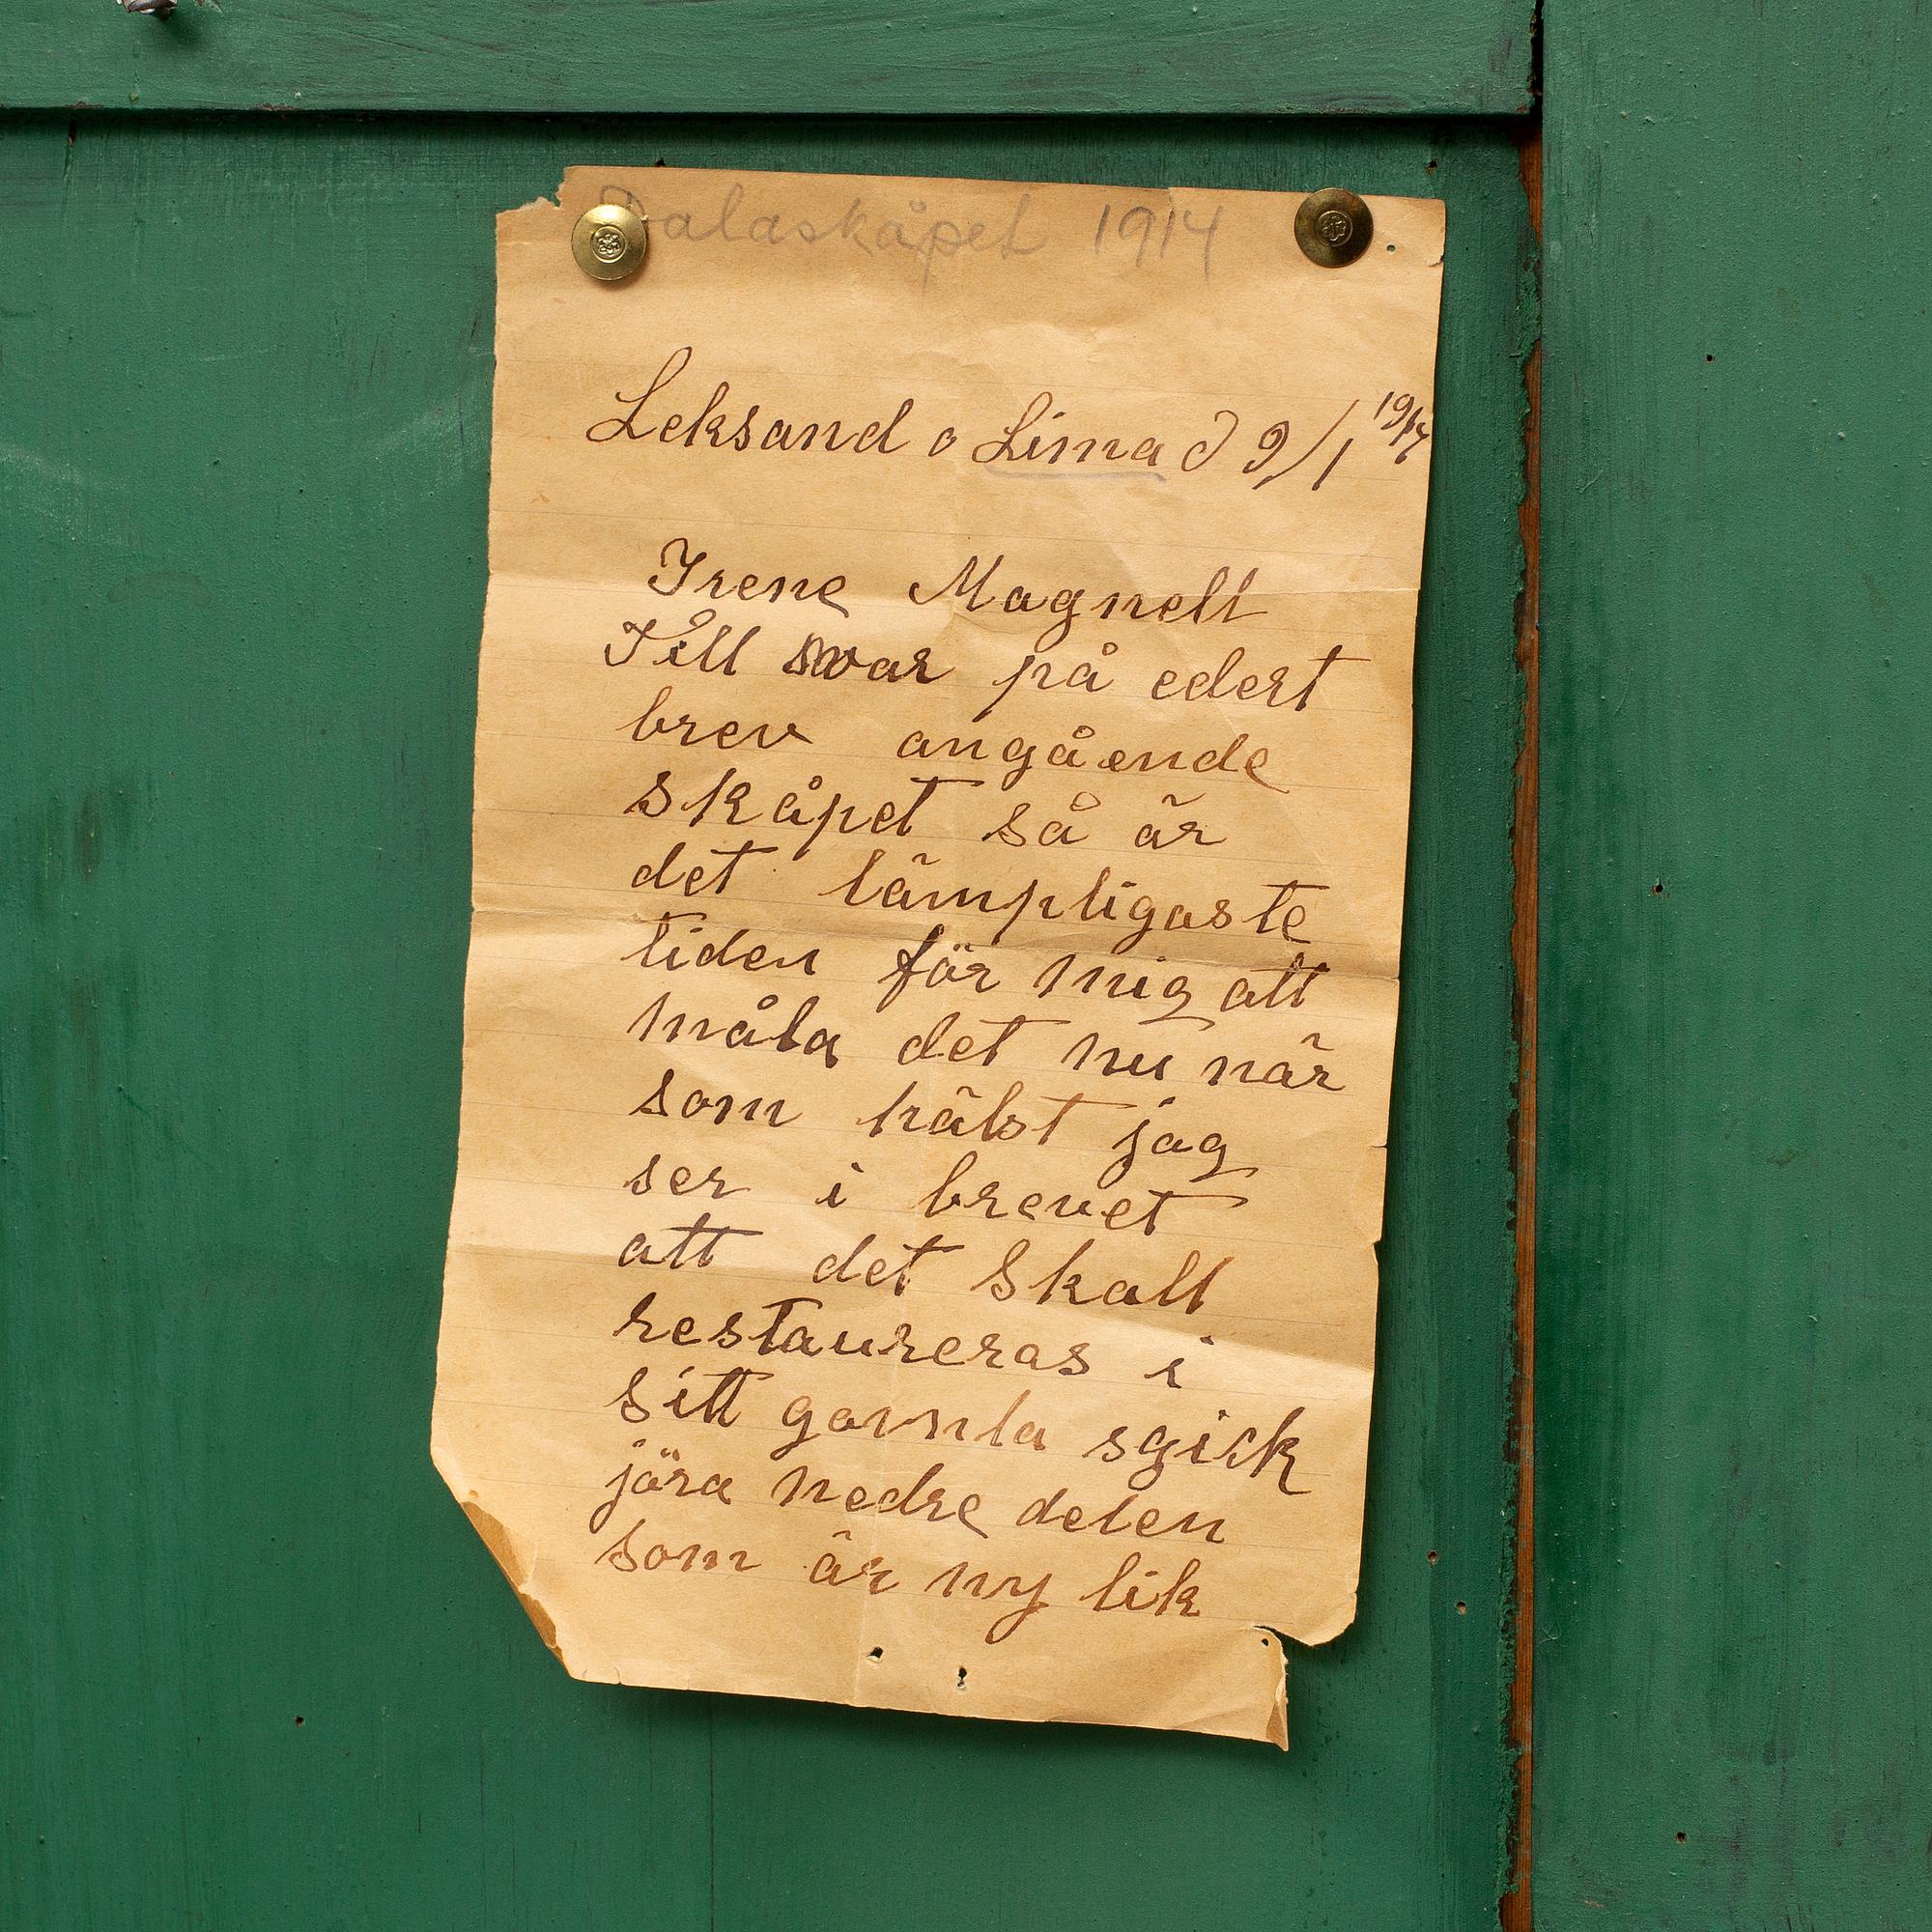 Dalaskåpet 1914
Leksand o Lima d 9/1 1914
Irene Magnell
Till svar på edert
brev angående
skåpet så är
det lämpligaste
tiden för mig att
måla det nu när
som hälst jag
ser i brevet
att det skall
restaureras i
sitt gamla sgick
jöra nedre delen
som är ny lik